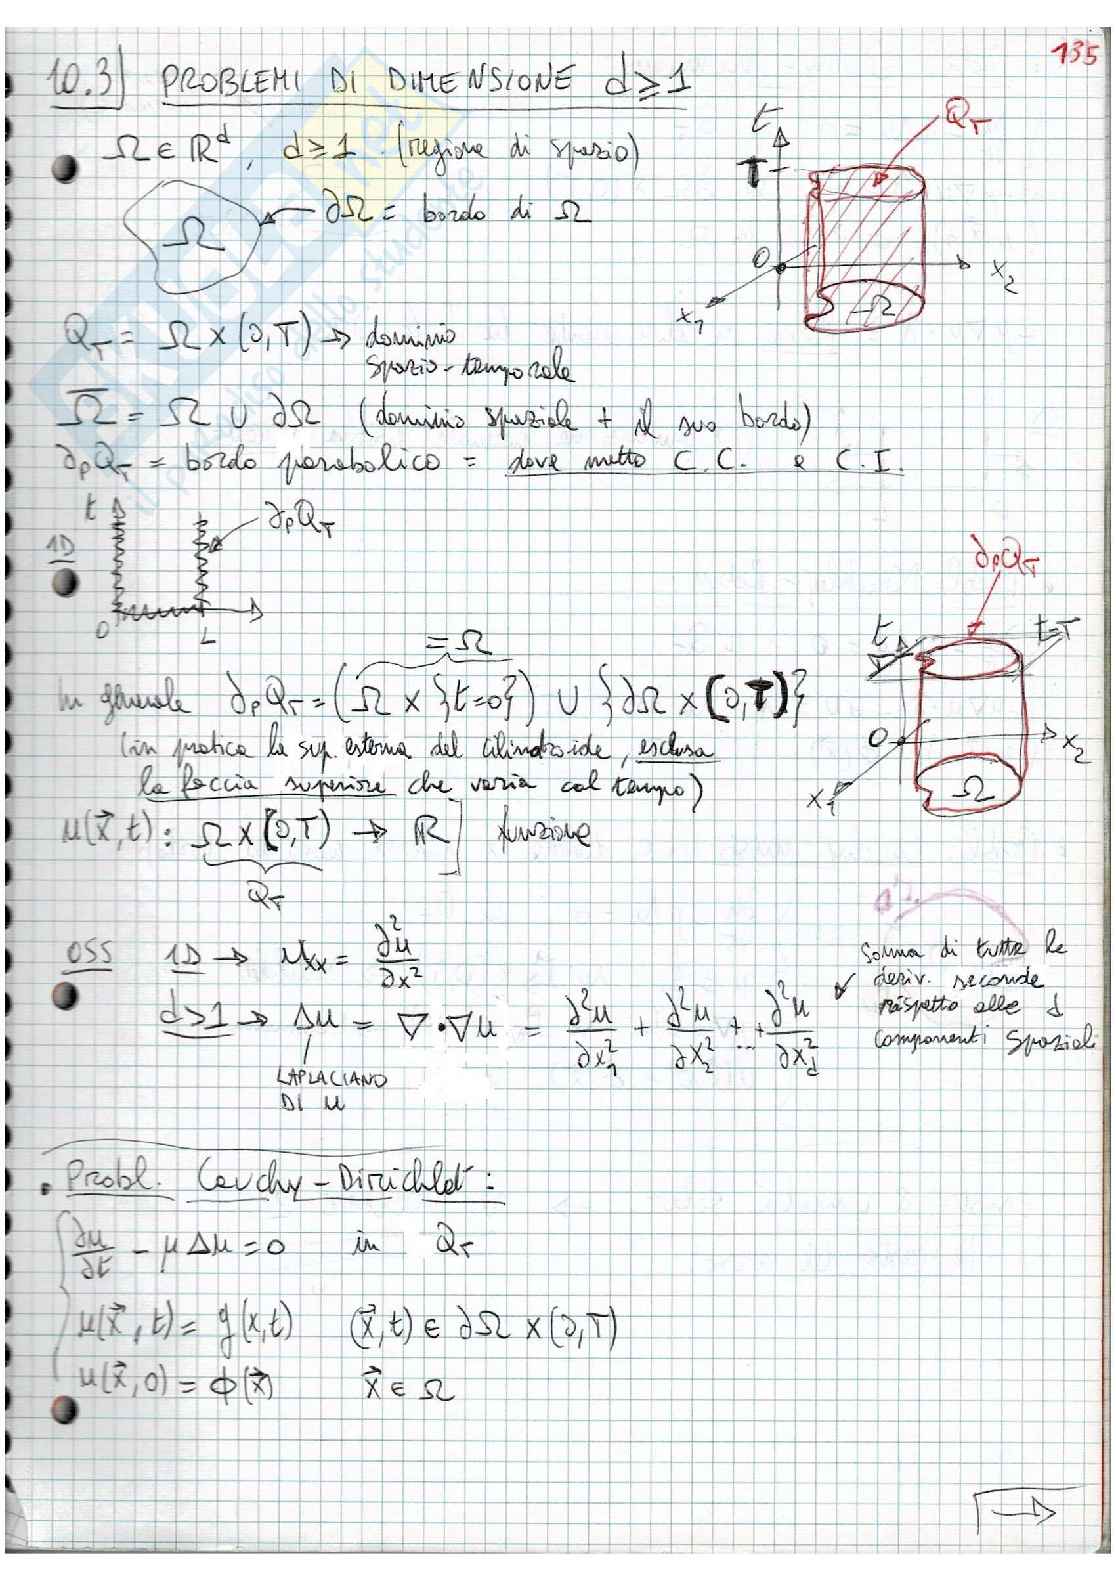 135
10.3) PROBLEMI DI DIMENSIONE d ≥ 1
Ω ∈ ℝ^d, d ≥ 1 (regione di spazio)
Ω ← ∂Ω = bordo di Ω
t T 0 x₁ x₂ Ω Q_T
Q_T = Ω × (0,T) → dominio
spazio-temporale
Ω̅ = Ω ∪ ∂Ω (dominio spaziale + il suo bordo)
∂ₚQ_T = bordo parabolico = dove metto C.C. e C.I.
1D t 0 L ∂ₚQ_T
∂ₚQ_T t t=T T 0 x₁ x₂ Ω
= Ω
in generale ∂ₚQ_T = (Ω × {t=0}) ∪ {∂Ω × (0,T)}
(in pratica la sup. esterna del cilindroide, esclusa
la faccia superiore che varia col tempo)
u(x⃗,t) : Ω × (0,T) → ℝ] funzione
Q_T
OSS 1D → u_xx = ∂²u/∂x²
d ≥ 1 → Δu = ∇·∇u = ∂²u/∂x₁² + ∂²u/∂x₂² + ... + ∂²u/∂x_d²
somma di tutte le
deriv. seconde
rispetto alle d
componenti spaziali
LAPLACIANO
DI u
• Probl. Cauchy-Dirichlet :
∂u/∂t - μΔu = 0 in Q_T
u(x⃗,t) = g(x,t) (x⃗,t) ∈ ∂Ω × (0,T)
u(x⃗,0) = ϕ(x⃗) x⃗ ∈ Ω
→